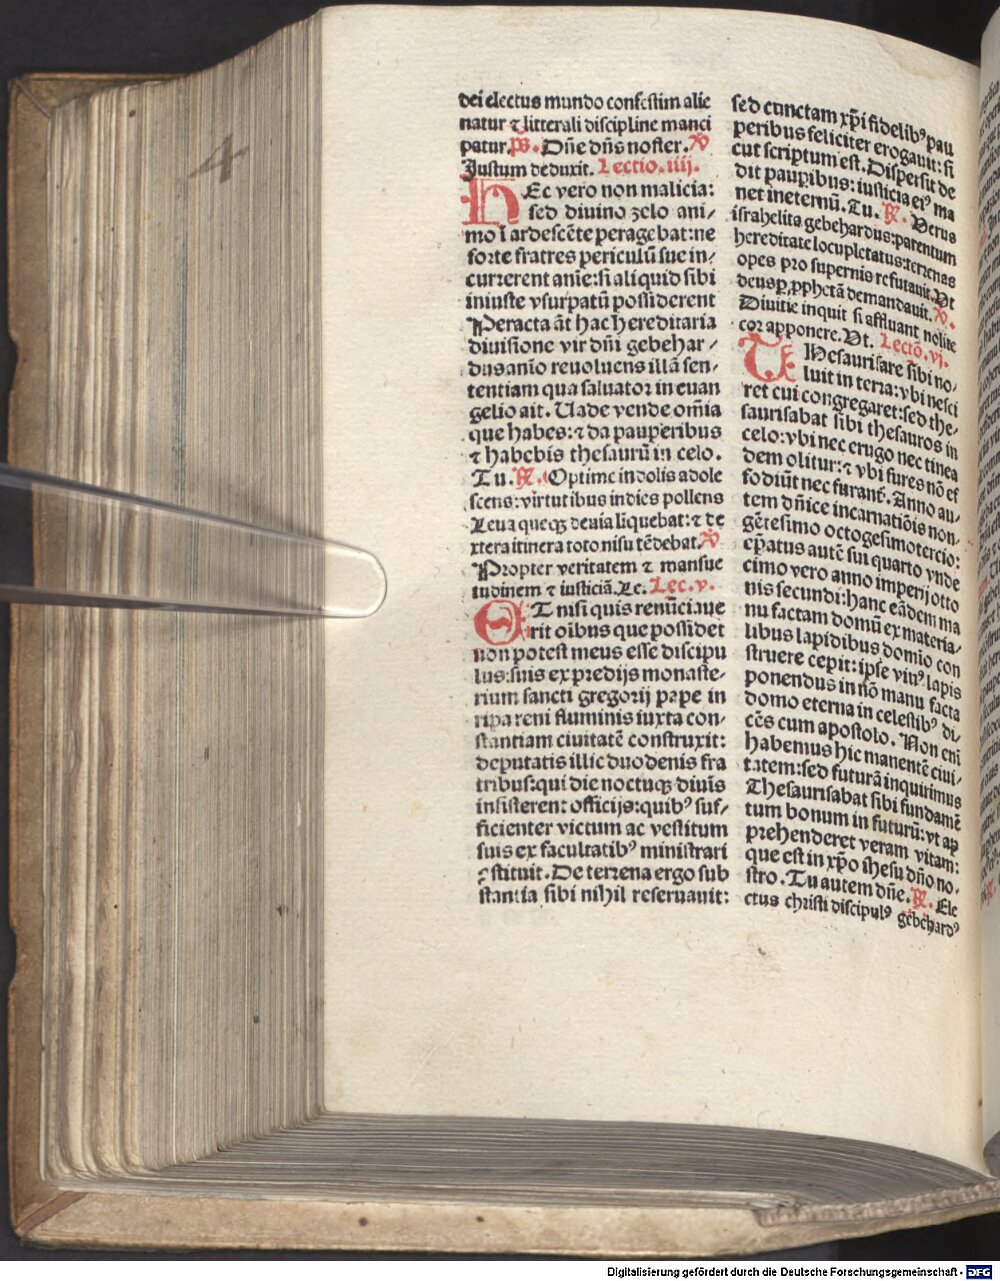 4
dei electus mundo confestim alie
natur ⁊ litterali discipline manci
patur. p̄s. Dñe dñs noster. ℣
Iustum deduxit. Lectio. iiij.
HEc vero non malicia:
sed diuino zelo ani/
mo ī ardescēte peragebat: ne
forte fratres periculū sue in/
currerent anīe: si aliquid sibi
iniuste vsurpatū possiderent
Peracta āt hac hereditaria
diuisione vir dñi gebehar/
dus anīo reuoluens illā sen/
tentiam qua saluator in euan
gelio ait. Uade vende om̄ia
que habes: ⁊ da pauperibus
⁊ habebis thesaurū in celo.
Tu. ℟. Optime indolis adole
scens: virtutibus indies pollens
Leua queqꝫ deuia liquebat: ⁊ de
xtera itinera toto nisu tēdebat. ℣
Propter veritatem ⁊ mansue
tudinem ⁊ iusticiā. Lc. Lec. v.
ET nisi quis renūciaue
rit oībus que possidet
non potest meus esse discipu
lus: suis ex predijs monaste/
rium sancti gregorij pape in
ripa reni fluminis iuxta con/
stantiam ciuitatē construxit:
deputatis illic duodenis fra
tribus: qui die noctuqꝫ diuīs
insisterent officijs: quibꝰ suf/
ficienter victum ac vestitum
suis ex facultatibꝰ ministrari
ꝯstituit. De terrena ergo sub
stantia sibi nihil reseruauit:
sed cunctam xp̄i fidelibꝰ pau
peribus feliciter erogauit: si
cut scriptum est. Dispersit de
dit pauꝑibus: iusticia eiꝰ ma
net ineternū. Tu. ℟. Verus
israhelita gebehardus: parentum
hereditate locupletatus: terrenas
opes pro supernis refutauit. Vt
deus ꝑ ꝓphetā demandauit. ℣.
Diuitie inquit si affluant nolite
cor apponere. Vt. Lectō. vj.
THesaurisare sibi no/
luit in terra: vbi nesci
ret cui congregaret: sed the/
saurisabat sibi thesauros in
celo: vbi nec erugo nec tinea
demolitur: ⁊ vbi fures nō ef
fodiūt nec furant᷑. Anno au/
tem dñice incarnatiōis non/
gētesimo octogesimotercio:
ep̄atus autē sui quarto vnde
cimo vero anno imperij otto
nis secundi: hanc eādem ma
nu factam domū ex materia/
libus lapidibus domīo con
struere cepit: ipse viuꝰ lapis
ponendus in nō manu facta
domo eterna in celestibꝰ di/
cēs cum apostolo. Non enī
habemus hic manentē ciui/
tatem: sed futurā inquirimus
Thesaurisabat sibi fundamē
tum bonum in futurū: vt ap
prehenderet veram vitam:
que est in xp̄o ihesu dño no/
stro. Tu autem dñe. ℟. Ele
ctus christi discipulꝰ gebehardꝰ
Digitalisierung gefördert durch die Deutsche Forschungsgemeinschaft - DFG